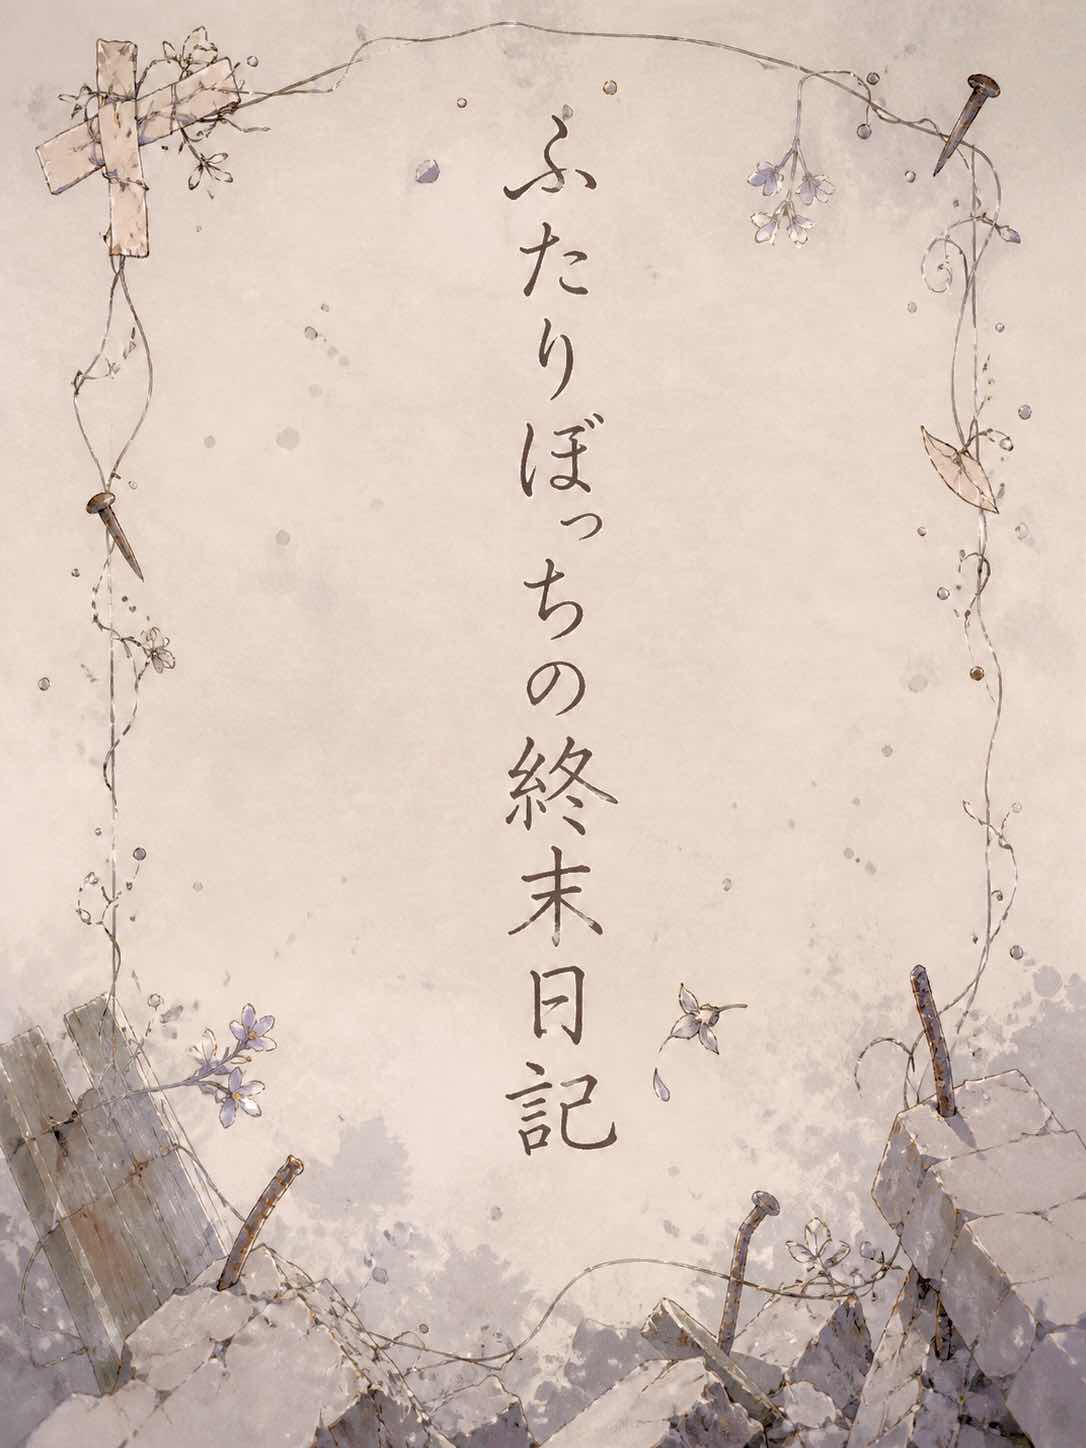 ふたりぼっちの終末日記